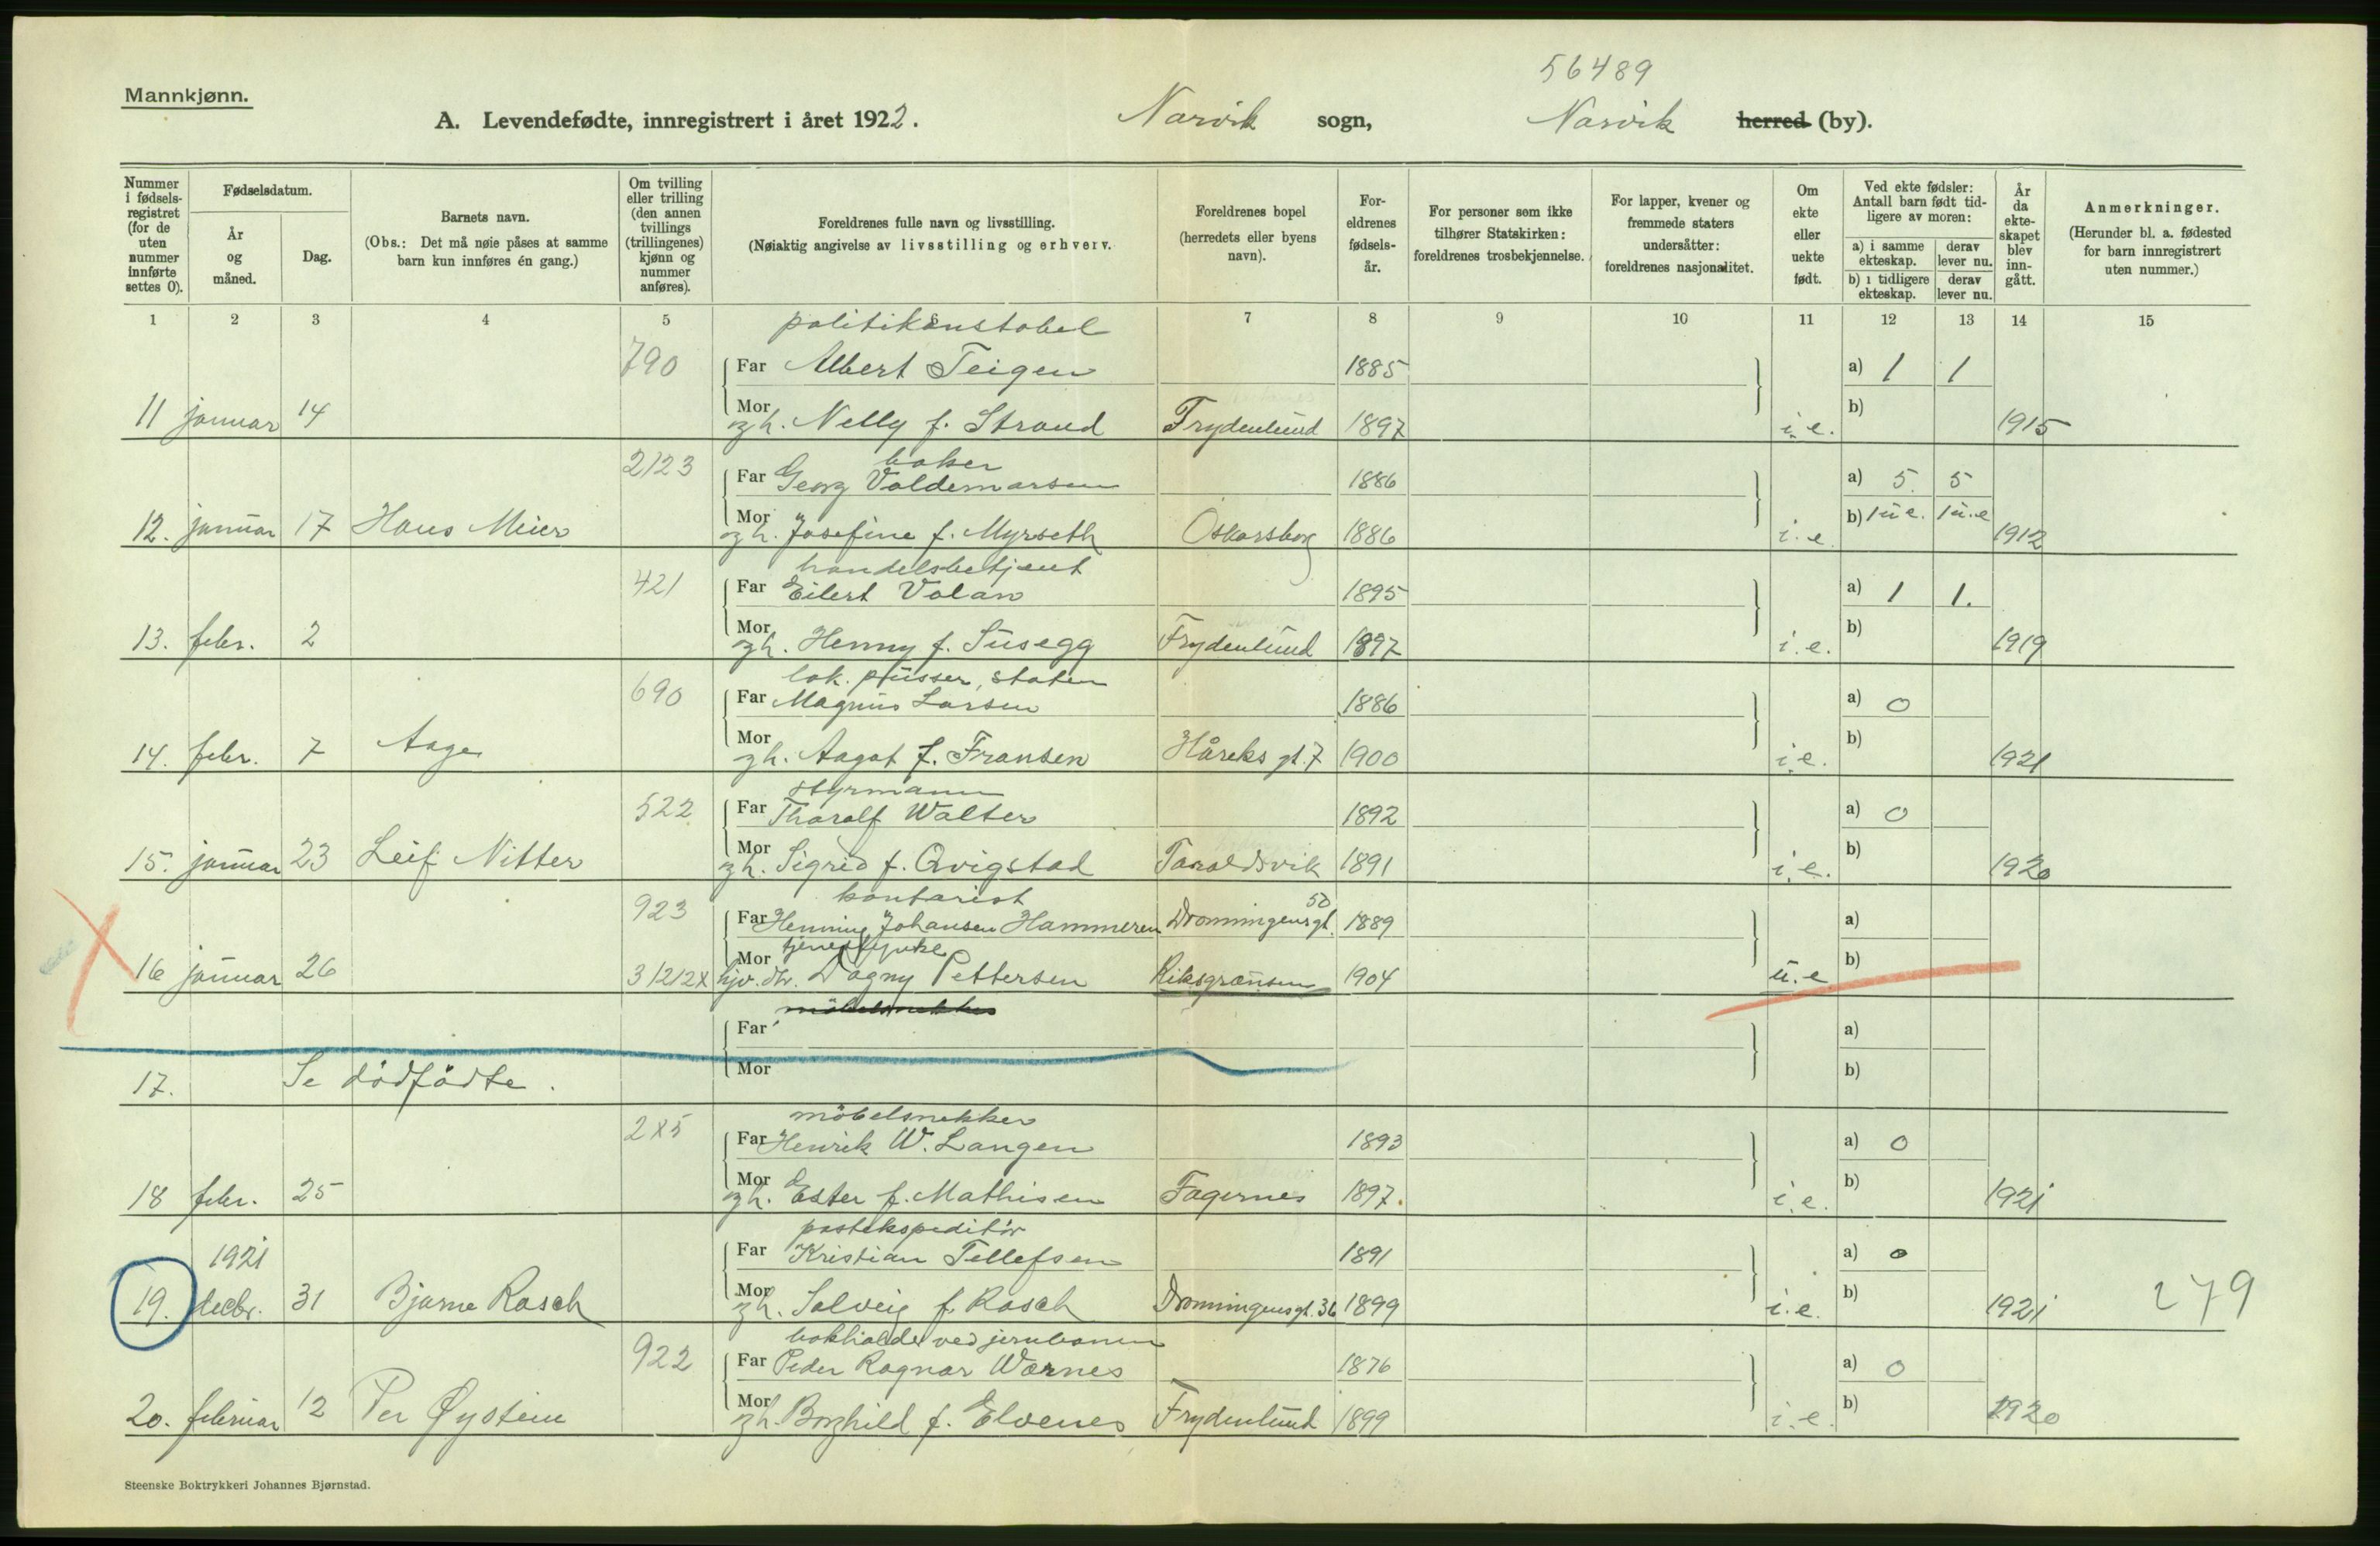 56489
Mannkjønn.
A. Levendefødte, innregistrert i året 1922. Narvik sogn, Narvik herred (by).
Nummer i fødsels-registret (for de uten nummer innførte settes 0).
Fødselsdatum.
År og måned.
Dag.
Barnets navn.
(Obs.: Det må nøie påses at samme barn kun innføres én gang.)
Om tvilling eller trilling (den annen tvillings (trillingenes) kjønn og nummer anføres).
Foreldrenes fulle navn og livsstilling.
(Nøiaktig angivelse av livsstilling og erhverv.
Foreldrenes bopel (herredets eller byens navn).
For-eldrenes fødsels-år.
For personer som ikke tilhører Statskirken: foreldrenes trosbekjennelse.
For lapper, kvener og fremmede staters undersåtter: foreldrenes nasjonalitet.
Om ekte eller uekte født.
Ved ekte fødsler: Antall barn født tid-ligere av moren:
a) i samme ekteskap. derav lever nu.
b) i tidligere ekteskap. derav lever nu.
År da ekte-skapet blev inn-gått.
Anmerkninger.
(Herunder bl. a. fødested for barn innregistrert uten nummer.)
1 2 3 4 5 6 7 8 9 10 11 12 13 14 15
politikonstabel
790 Far Albert Teigen 1885 a) 1 1
11 januar 14 Mor gh. Nelly f. Strand Frydenlund 1897 i.e. b) 1915
baker
2123 Far Georg Valdemarsen 1886 a) 5. 5
12. januar 17 Hans Meier Mor gh. Josefine f. Myrseth Oskarsborg 1886 i.e. b) 1 u e. 1 u.e 1912
handelsbetjent
421 Far Eilert Volan 1895 a) 1 1.
13. febr. 2 Mor gh. Henny f. Susegg Frydenlund 1897 i.e. b) 1919
lok. pusser, staten
690 Far Magnus Larsen 1886 a) 0
14. febr. 7 Aage Mor gh. Aagot f. Fransen Håreks gt. 7 1900 i.e. b) 1921
styrmann
522 Far Tharalf Walter 1892 a) 0
15. januar 23 Leif Nitter Mor gh. Sigrid f. Qvigstad Taraldsvik 1891 i.e. b) 1920
kontorist
923 Far Henning Johansen Hammeren Dronningensgt. 50 1889 a)
tjenestepike
16 januar 26 Mor Dagny Pettersen Riksgrænsen 1904 u.e b)
möbelsnekker
Far a)
17. Se dödfödte. Mor b)
möbelsnekker
2x5 Far Henrik W. Langen 1893 a) 0
18 febr. 25 Mor gh. Ester f. Mathisen Fagernes 1897. i.e. b) 1921
postekspeditör
1921 Far Kristian Tellefsen 1891 a) 0
19. decbr. 31 Bjarne Rasch Mor gh. Solveig f. Rasch Dronningensgt. 36 1899 i.e. b) 1921 279
bokholder ved jernbanen
922 Far Peder Ragnar Wærnes 1876 a) 0
20. februar 12 Per Øystein Mor gh. Borghild f. Elvenes Frydenlund 1899 i.e. b) 1920
Steenske Boktrykkeri Johannes Bjørnstad.